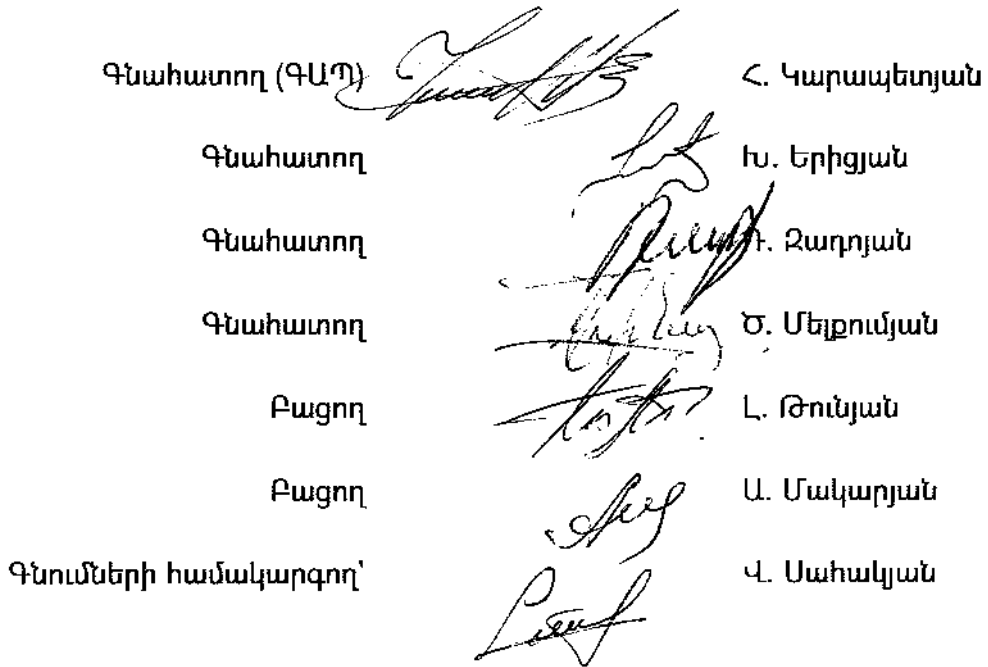 Գնահատող (ԳԱՊ) Հ. Կարապետյան
Գնահատող Խ. Երիցյան
Գնահատող Զադոյան
Գնահատող Ծ. Մելքումյան
Բացող Լ. Թունյան
Բացող Ա. Մակարյան
Գնումների համակարգող՝ Վ. Սահակյան